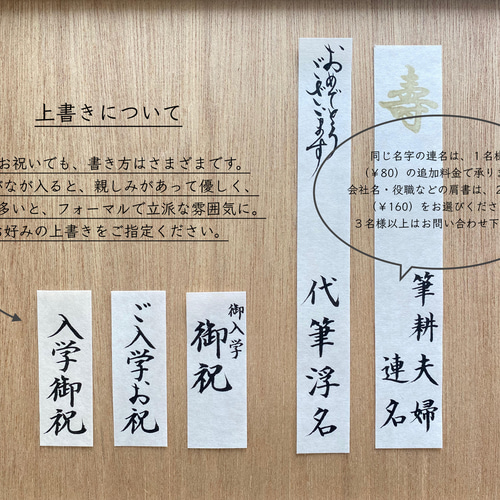 上書きについて
お祝いでも、書き方はさまざまです。
がなが入ると、親しみがあって優しく、
多いと、フォーマルで立派な雰囲気に。
お好みの上書きをご指定ください。
入学御祝
ご入学、お祝
御入学
御祝
おめでとう
ございます
代筆浮名
寿
同じ名字の連名は、１名様
（￥80）の追加料金で承りま
会社名・役職などの肩書は、2
（￥160）をお選びくださ
３名様以上はお問い合わせ下
筆耕夫婦
連名